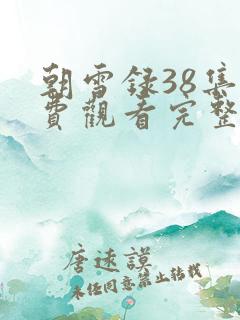 朝雪録38集
費觀看完整
唐逺謨
未经同意禁止转载